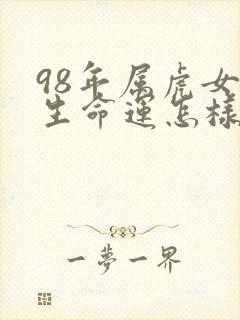 98年属虎女
生命運怎樣
一夢一界